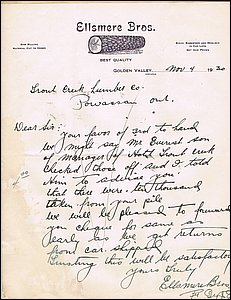 Ellsmere Bros.
BEST QUALITY
GOLDEN VALLEY, Nov 4 1920
Trout Creek Lumber Co.
Powassan Ont.
Dear Sir:
your favor of 3rd to hand
we might say Mr Everest son
of manager of Hotel Trout Creek
checked those off and I told
him to advise you
that there were ten thousand
taken from your pile
we will be pleased to forward
you cheque for same as
early as we get returns
from car shipped
Trusting this will be satisfactory
yours truly
Ellsmere Bros